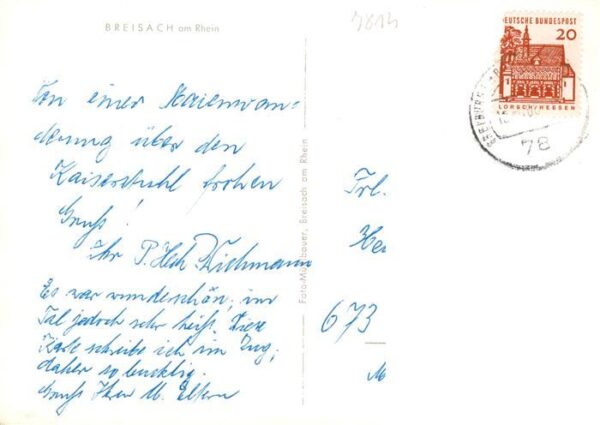 BREISACH am Rhein
Von einer Maienwan-
derung über den
Kaiserstuhl frohen
Gruß!
Ihr P. Hch. Wichmann
Es war wunderschön; im
Tal jedoch sehr heiß. Diese
Karte schreibe ich im Zug;
daher so bucklig.
Gruß Ihren Eltern
Foto-Mühlbauer, Breisach am Rhein
3814
DEUTSCHE BUNDESPOST
20
LORSCH/HESSEN
78
Frl.
He
673
M